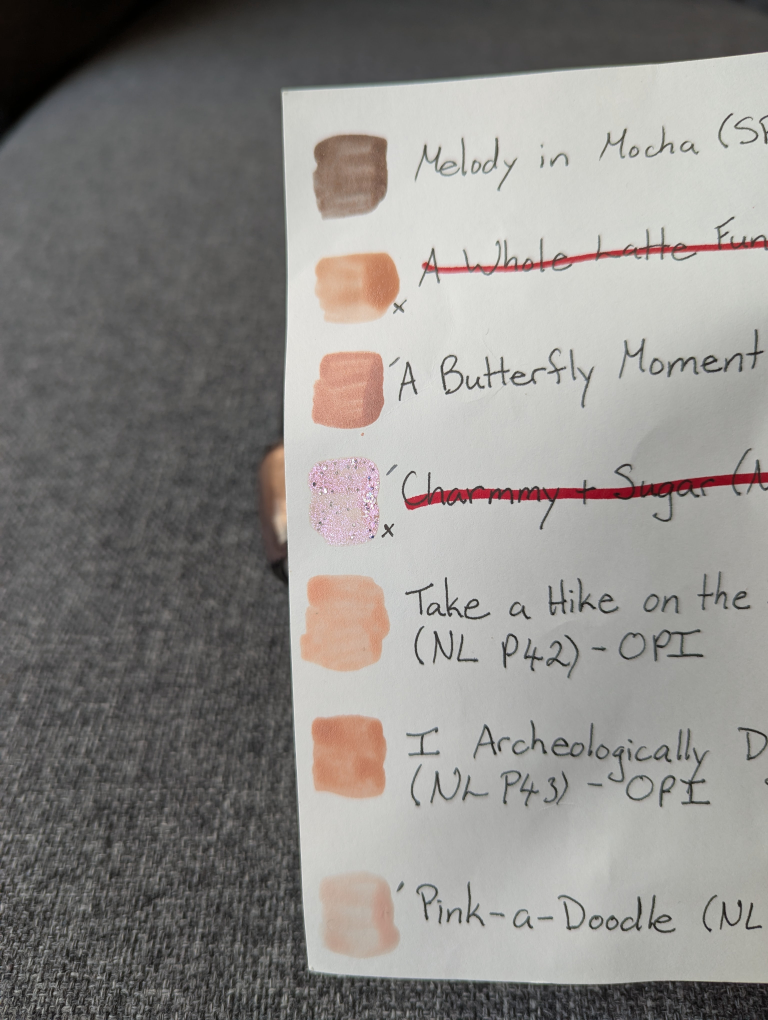 Melody in Mocha (SF
A Whole Latte Fun
'A Butterfly Moment
'Charmmy + Sugar (N
Take a Hike on the
(NL P42) - OPI
I Archeologically D
(NL P43) - OPI
'Pink-a-Doodle (NL